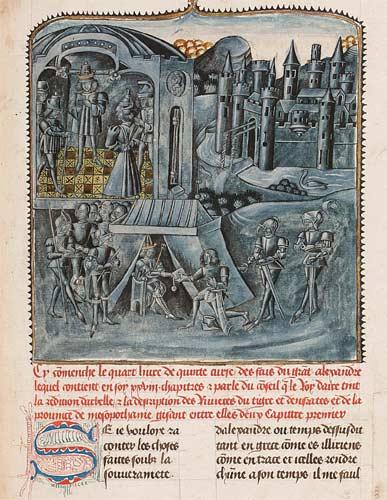 Cy cõmenche le quart livre de quinte curse des fais du grãt alexandre
lequel contient en soy chapitres & parle du conseil que le Roy daire tint
la reddition & la description des Rivieres du tigre et deufrates et de la
province de mesopothamie gisant entre elles deux Capittre premier
Se je vouloye ra
conter les choses
faittes soubz la
souvrainneté
dalexandre ou temps dessusdit
tant en grece cõme es illiriens
cõme en trace et icelles rendre
chũne a son temps il me faul